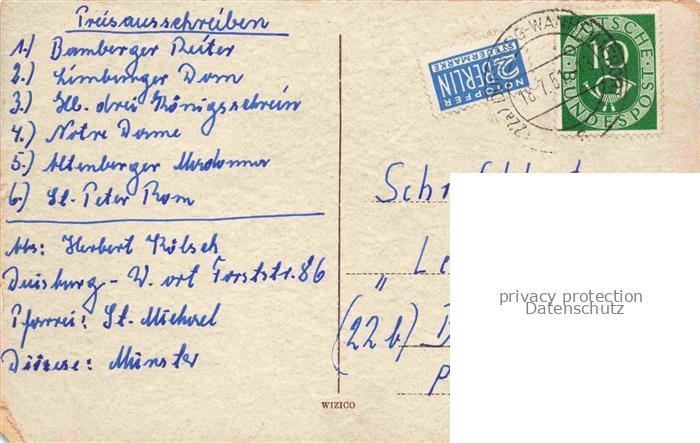 Preisausschreiben
1.) Bamberger Reiter
2.) Limburger Dom
3.) Hl. drei Königsschrein
4.) Notre Dame
5.) Altenberger Madonna
6.) St. Peter Rom
Abs: Herbert Kölsch
Duisburg - W. ort Forststr. 86
Pfarrei: St. Michael
Diözese: Münster
NOTOPFER
2 BERLIN
STEUERMARKE
DEUTSCHE
10
BUNDESPOST
(22a)
18.7.5
"
(22b)
WIZICO
privacy protection
Datenschutz